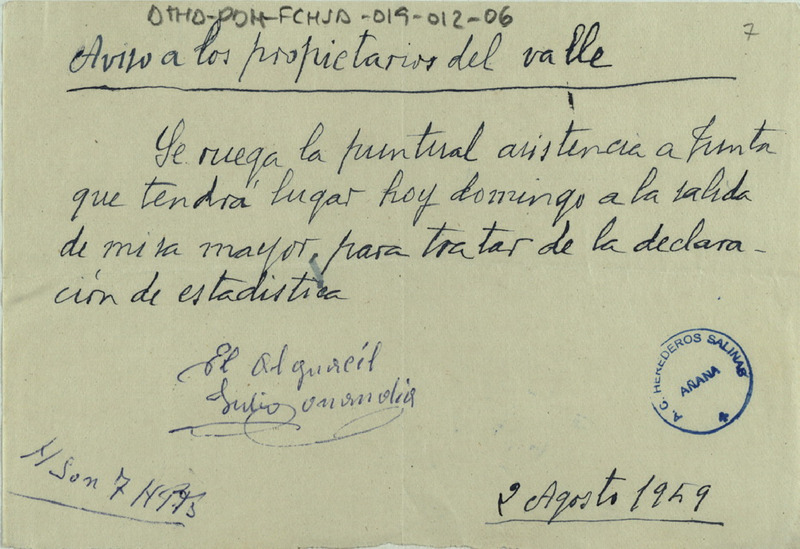 DTHA-PDH-FCHSA-019-012-06
7
Aviso a los propietarios del valle
Se ruega la puntual asistencia a Junta
que tendrá lugar hoy domingo a la salida
de misa mayor, para tratar de la declara-
ción de estadistica
El Alguacíl
A. C. HEREDEROS SALINAS
AÑANA
Son 7
2 Agosto 1959